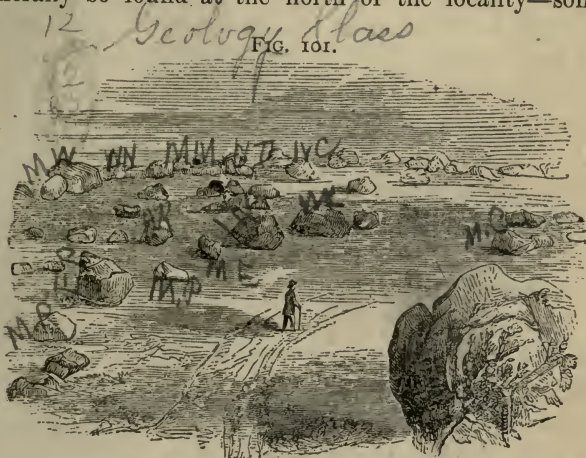 be found at the north of the locality—som
12 Geology Class
Fig. 101.
MW WN MM ND WC
WK
M.C
ME
M.P
M.P